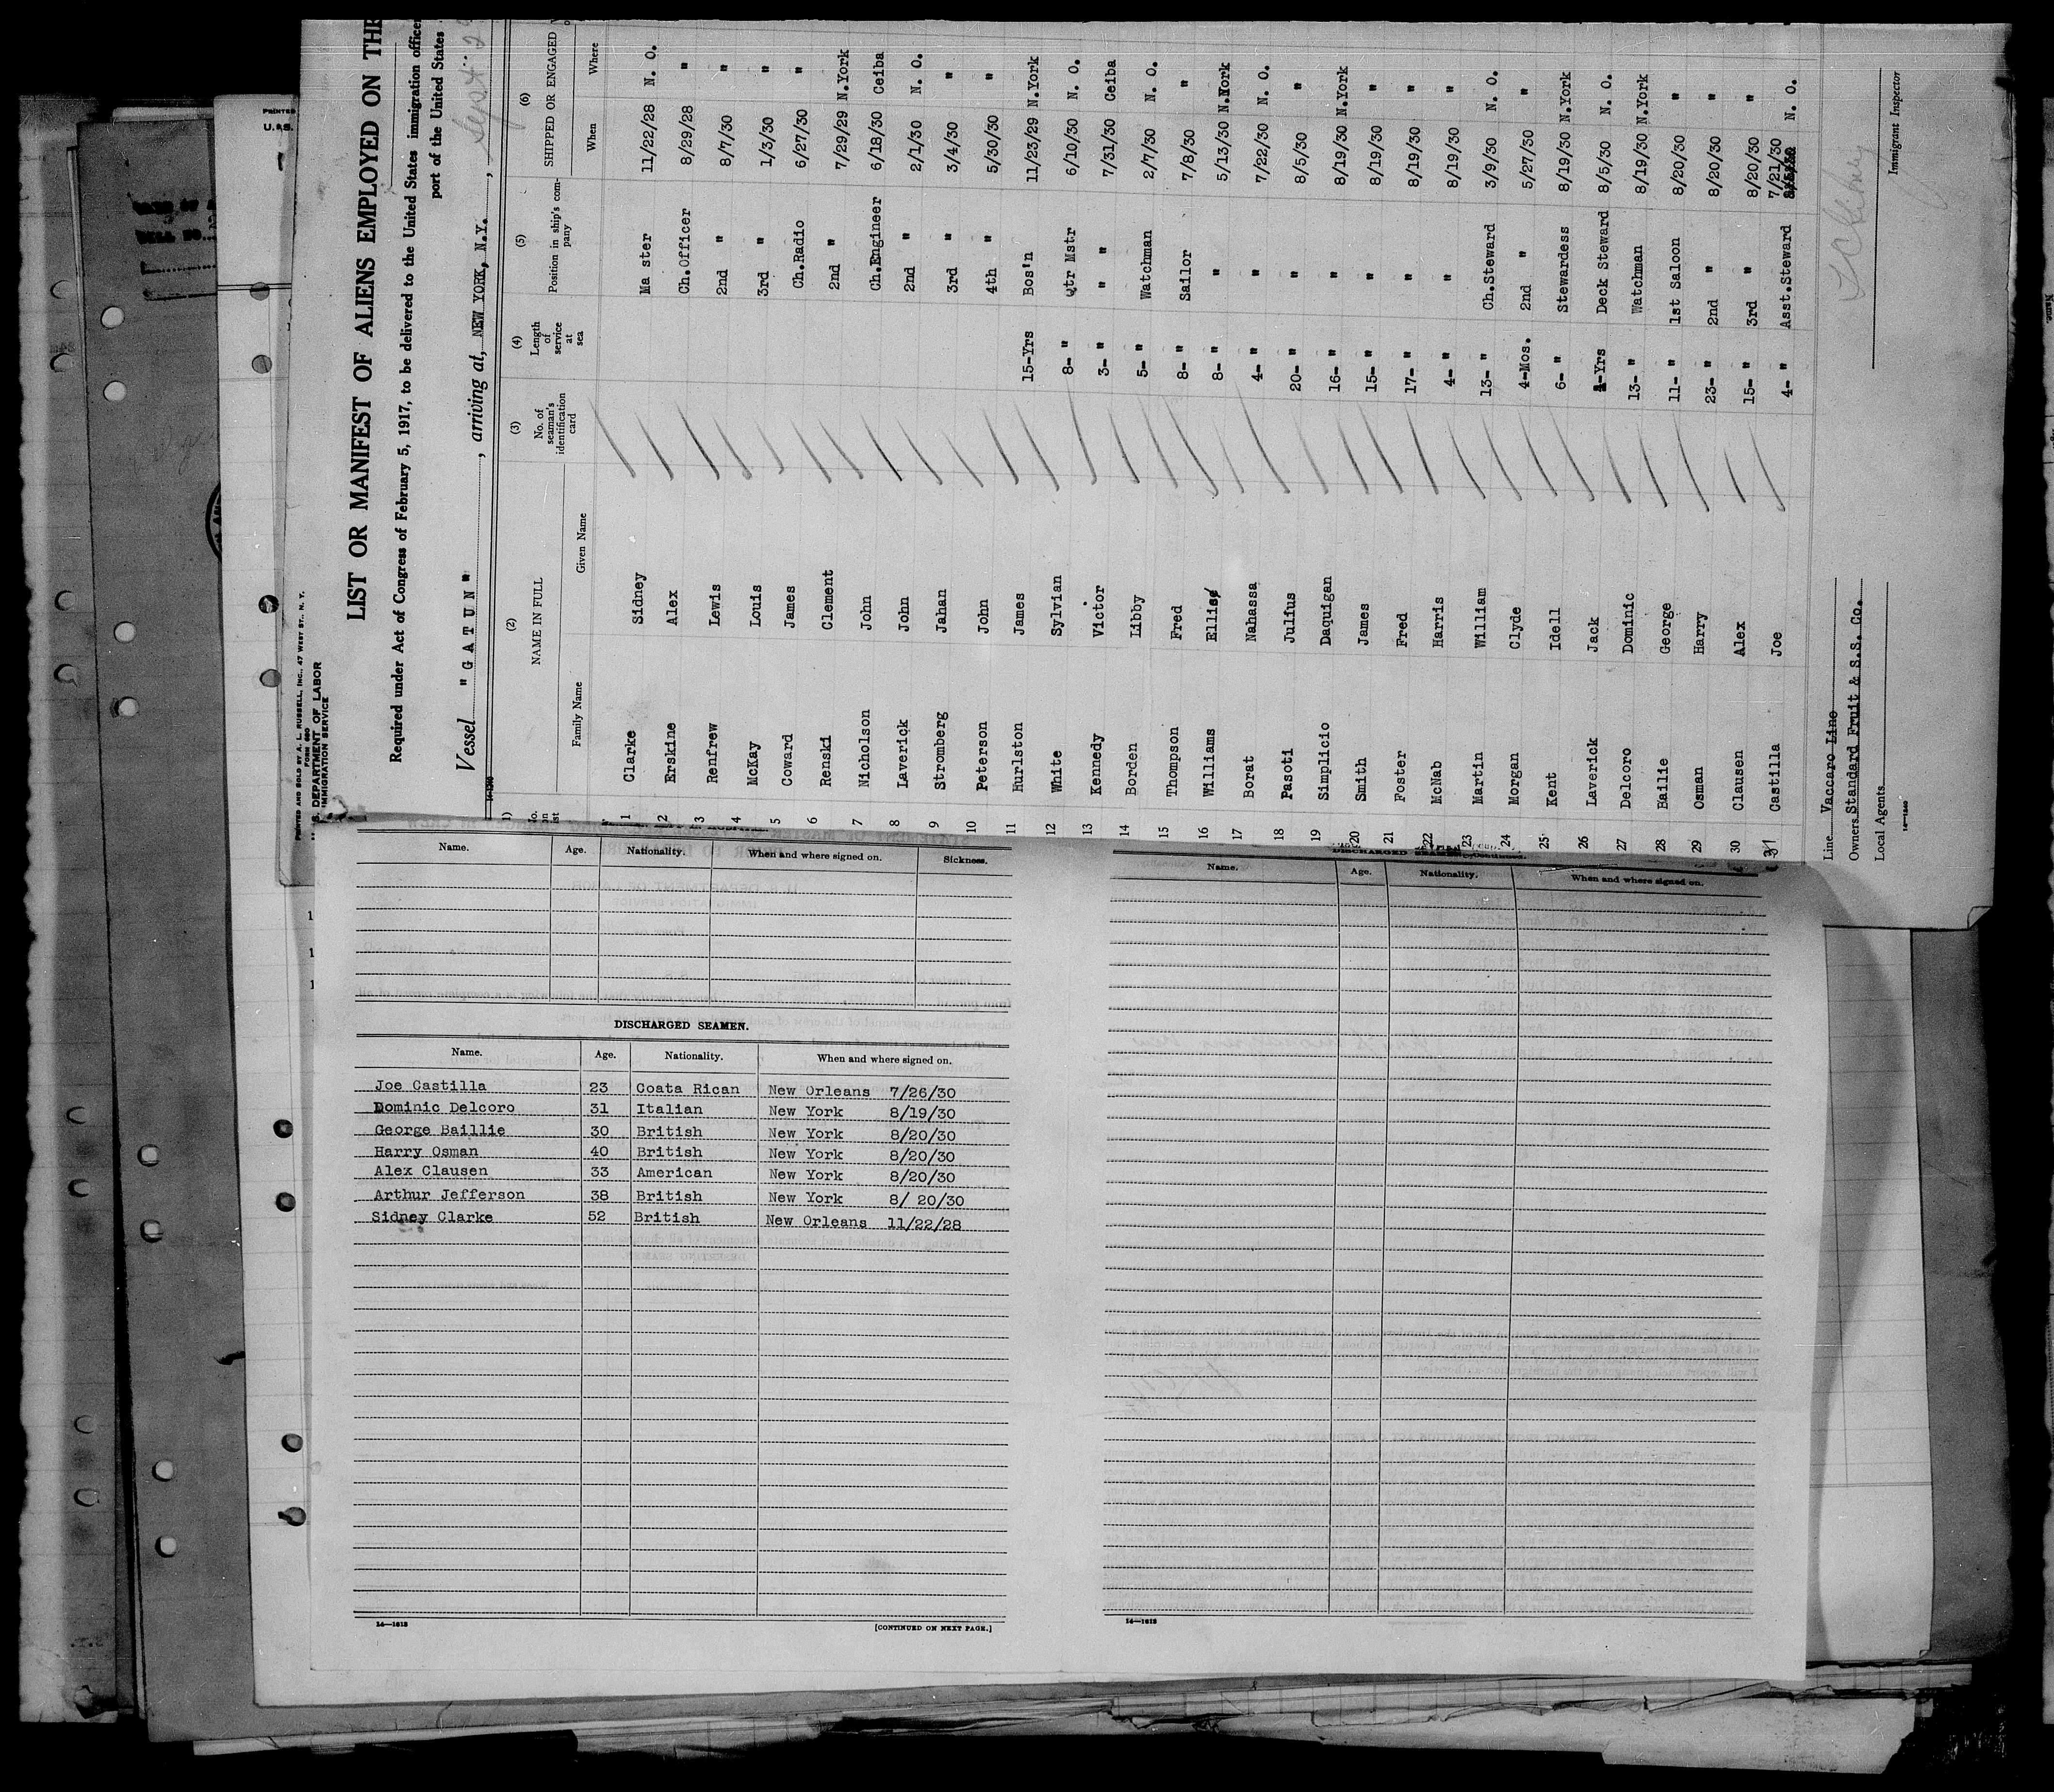 PRINTED AND SOLD BY A. L. RUSSELL, INC., 47 WEST ST., N. Y.
FORM 680
U. S. DEPARTMENT OF LABOR
IMMIGRATION SERVICE
LIST OR MANIFEST OF ALIENS EMPLOYED ON THE
Required under Act of Congress of February 5, 1917, to be delivered to the United States immigration officer
port of the United States
Vessel " G A T U N " , arriving at, NEW YORK, N.Y. , Sept. 2
(1) (2) (3) (4) (5) (6)
No. on list NAME IN FULL No. of seaman's identification card Length of service at sea Position in ship's company SHIPPED OR ENGAGED
Family Name Given Name When Where
1 Clarke Sidney Ma ster 11/22/28 N. O.
2 Erskine Alex Ch.Officer 8/29/28 "
3 Renfrew Lewis 2nd " 8/7/30 "
4 McKay Louis 3rd " 1/3/30 "
5 Coward James Ch.Radio 6/27/30 "
6 Renski Clement 2nd " 7/29/29 N.York
7 Nicholson John Ch.Engineer 6/18/30 Ceiba
8 Laverick John 2nd " 2/1/30 N. O.
9 Stromberg Jahan 3rd " 3/4/30 "
10 Peterson John 4th " 5/30/30 "
11 Hurlston James 15-Yrs Bos'n 11/23/29 N.York
12 White Sylvian 8- " Qtr Mstr 6/10/30 N. O.
13 Kennedy Victor 3- " " " 7/31/30 Ceiba
14 Borden Libby 5- " Watchman 2/7/30 N. O.
15 Thompson Fred 8- " Sailor 7/8/30 "
16 Williams Ellis 8- " " 5/13/30 N.York
17 Borat Nahassa 4- " " 7/22/30 N. O.
18 Pasoti Julius 20- " " 8/5/30 "
19 Simplicio Daquigan 16- " " 8/19/30 N.York
20 Smith James 15- " " 8/19/30 "
21 Foster Fred 17- " " 8/19/30 "
22 McNab Harris 4- " " 8/19/30 "
23 Martin William 13- " Ch.Steward 3/9/30 N. O.
24 Morgan Clyde 4-Mos. 2nd " 5/27/30 "
25 Kent Idell 6- " Stewardess 8/19/30 N.York
26 Laverick Jack -Yrs Deck Steward 8/5/30 N. O.
27 Delcoro Dominic 13- " Watchman 8/19/30 N.York
28 Bailie George 11- " 1st Saloon 8/20/30 "
29 Osman Harry 23- " 2nd " 8/20/30 "
30 Clausen Alex 15- " 3rd " 8/20/30 "
31 Castilla Joe 4- " Asst.Steward 7/21/30 N. O.
Line Vaccaro Line
Owners Standard Fruit & S.S. Co.
Local Agents
Immigrant Inspector
Name. Age. Nationality. When and where signed on. Sickness.
DISCHARGED SEAMEN.
Name. Age. Nationality. When and where signed on.
Joe Castilla 23 Coata Rican New Orleans 7/26/30
Dominic Delcoro 31 Italian New York 8/19/30
George Baillie 30 British New York 8/20/30
Harry Osman 40 British New York 8/20/30
Alex Clausen 33 American New York 8/20/30
Arthur Jefferson 38 British New York 8/ 20/30
Sidney Clarke 52 British New Orleans 11/22/28
14—1618 [CONTINUED ON NEXT PAGE.]
DISCHARGED SEAMEN—Continued.
Name. Age. Nationality. When and where signed on.
14—1618